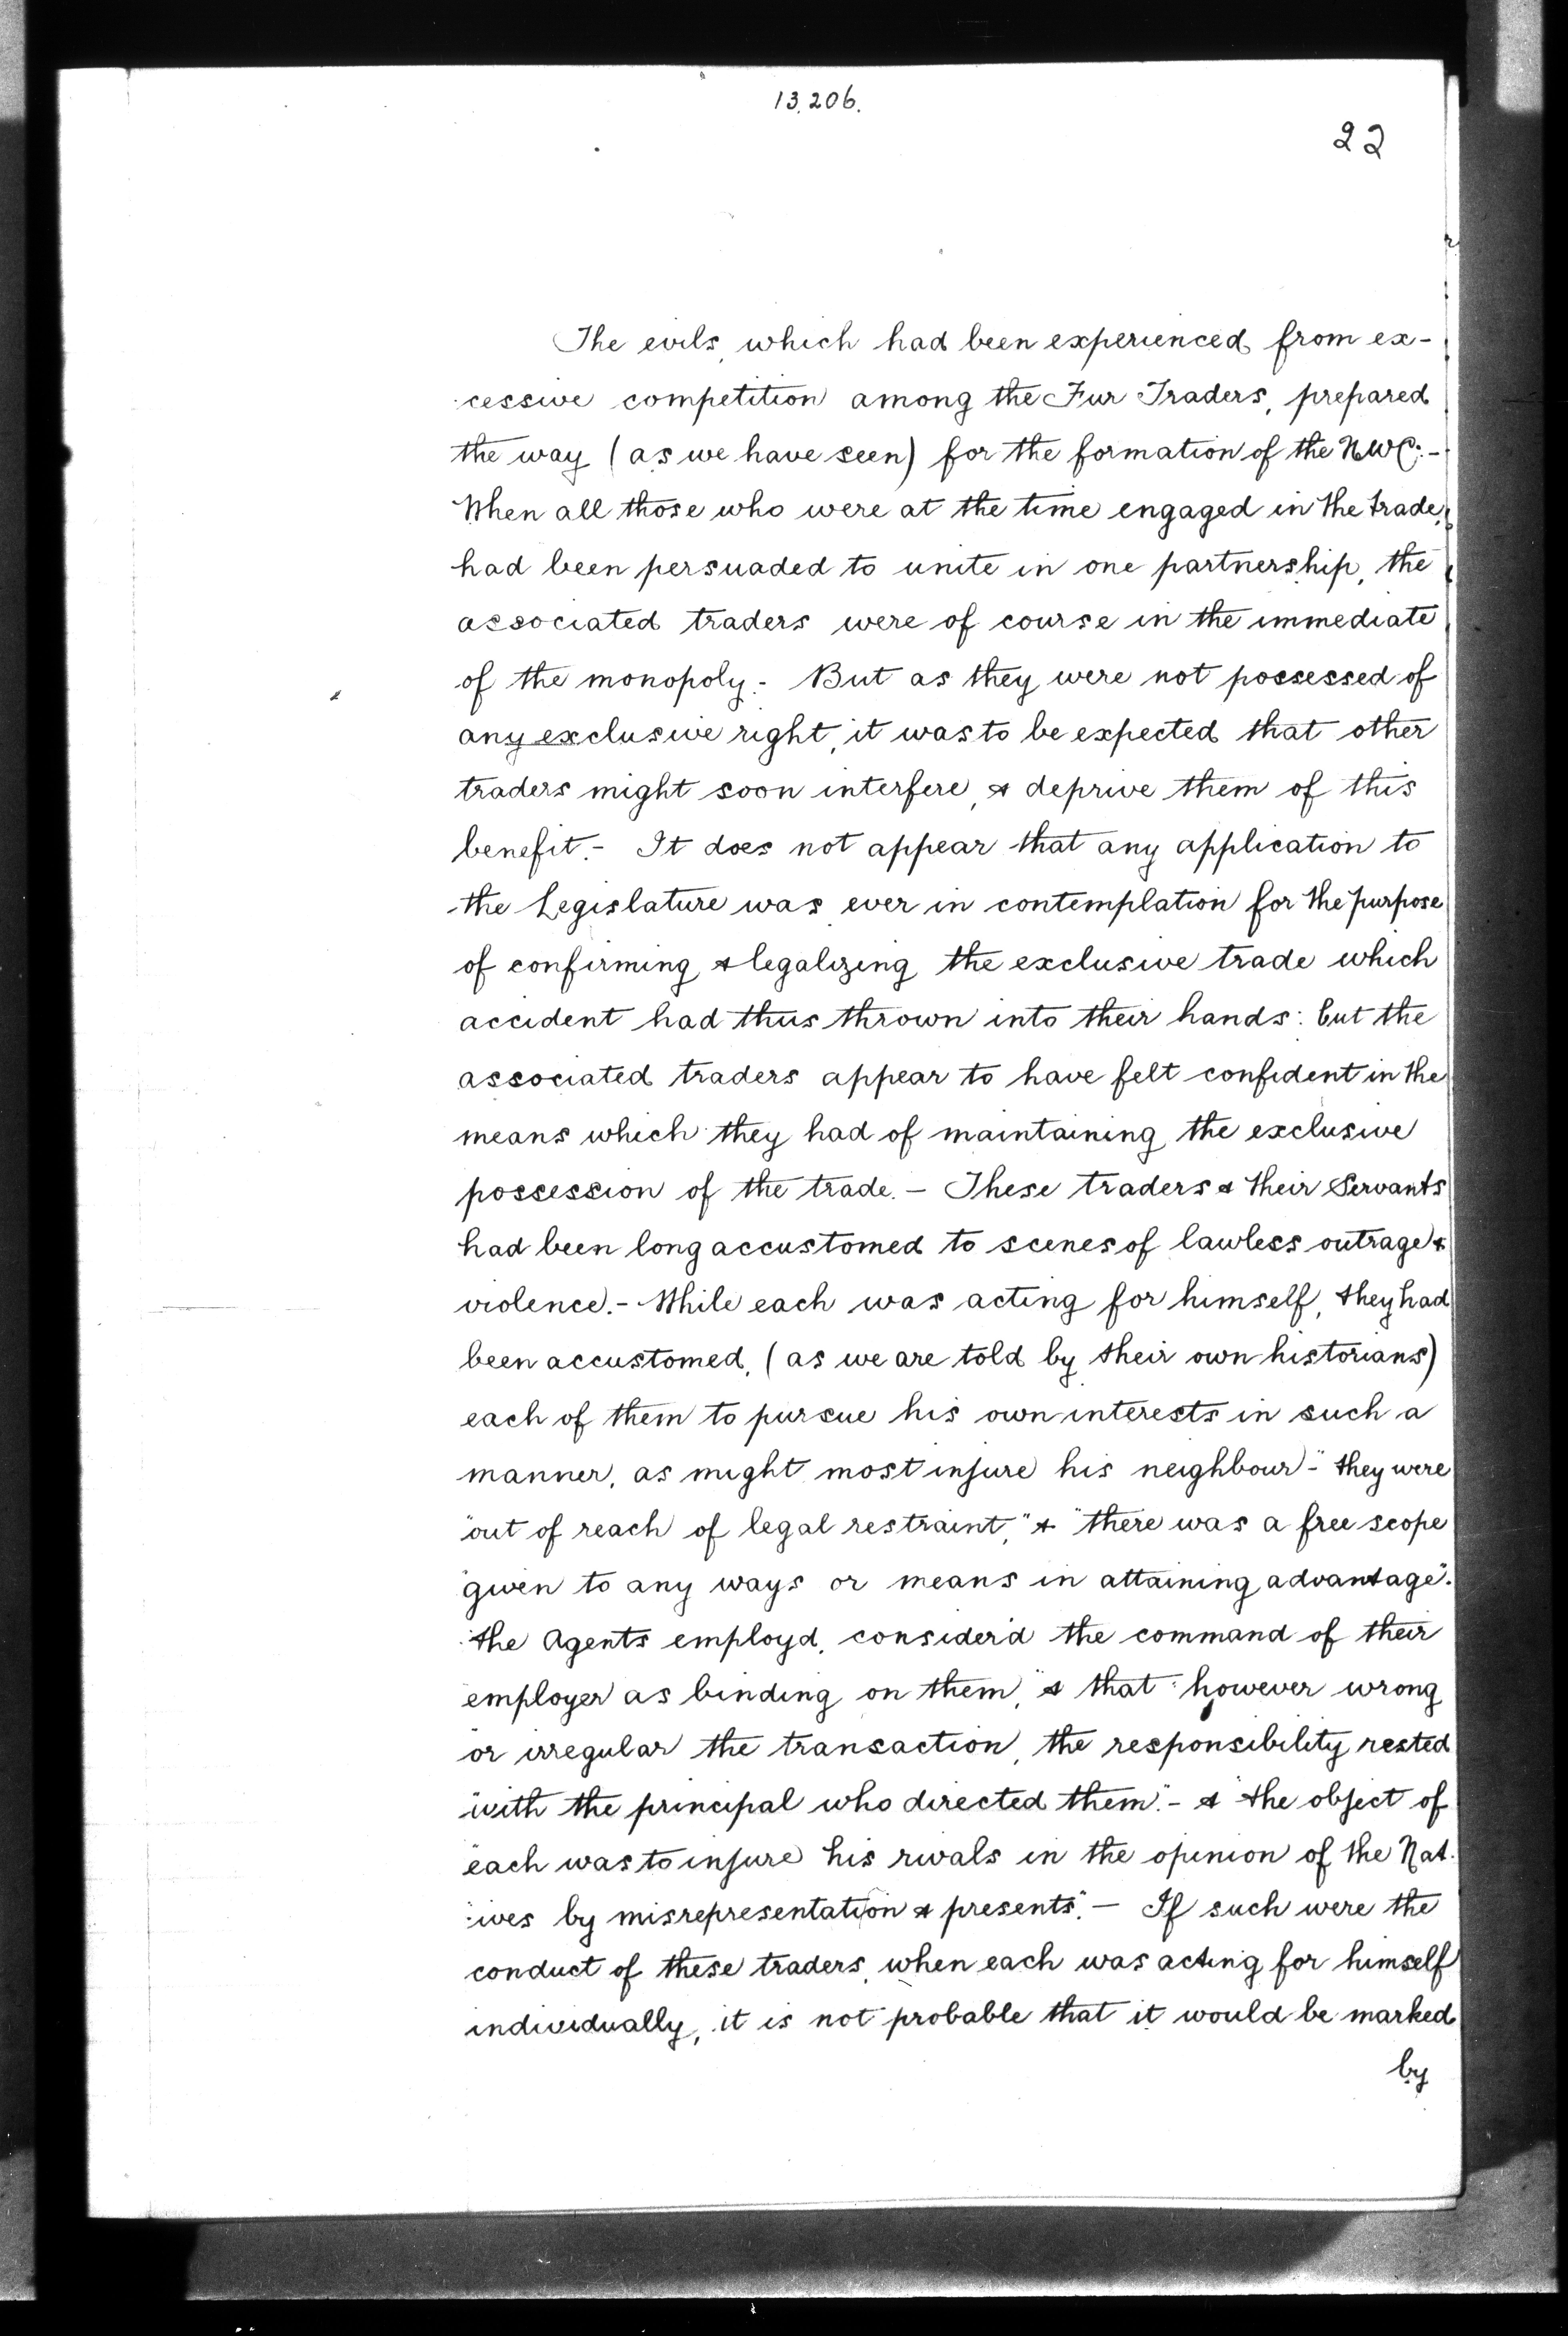 13.206.
22
The evils, which had been experienced from ex-
cessive competition among the Fur Traders, prepared
the way (as we have seen) for the formation of the NWC:-
When all those who were at the time engaged in the trade,
had been persuaded to unite in one partnership, the
associated traders were of course in the immediate
of the monopoly.- But as they were not possessed of
any exclusive right, it was to be expected that other
traders might soon interfere, & deprive them of this
benefit.- It does not appear that any application to
the Legislature was ever in contemplation for the purpose
of confirming & legalizing the exclusive trade which
accident had thus thrown into their hands: but the
associated traders appear to have felt confident in the
means which they had of maintaining the exclusive
possession of the trade.- These traders & their Servants
had been long accustomed to scenes of lawless outrage &
violence.- While each was acting for himself, they had
been accustomed, (as we are told by their own historians)
each of them to pursue his own interests in such a
manner, as might most injure his neighbour- "they were
"out of reach of legal restraint," & "there was a free scope
"given to any ways or means in attaining advantage".
the Agents employd, consider'd the command of their
"employer as binding on them," & that "however wrong
"or irregular the transaction, the responsibility rested
"with the principal who directed them".- & "the object of
"each was to injure his rivals in the opinion of the Nat-
"ives by misrepresentation & presents".- If such were the
conduct of these traders, when each was acting for himself
individually, it is not probable that it would be marked
by